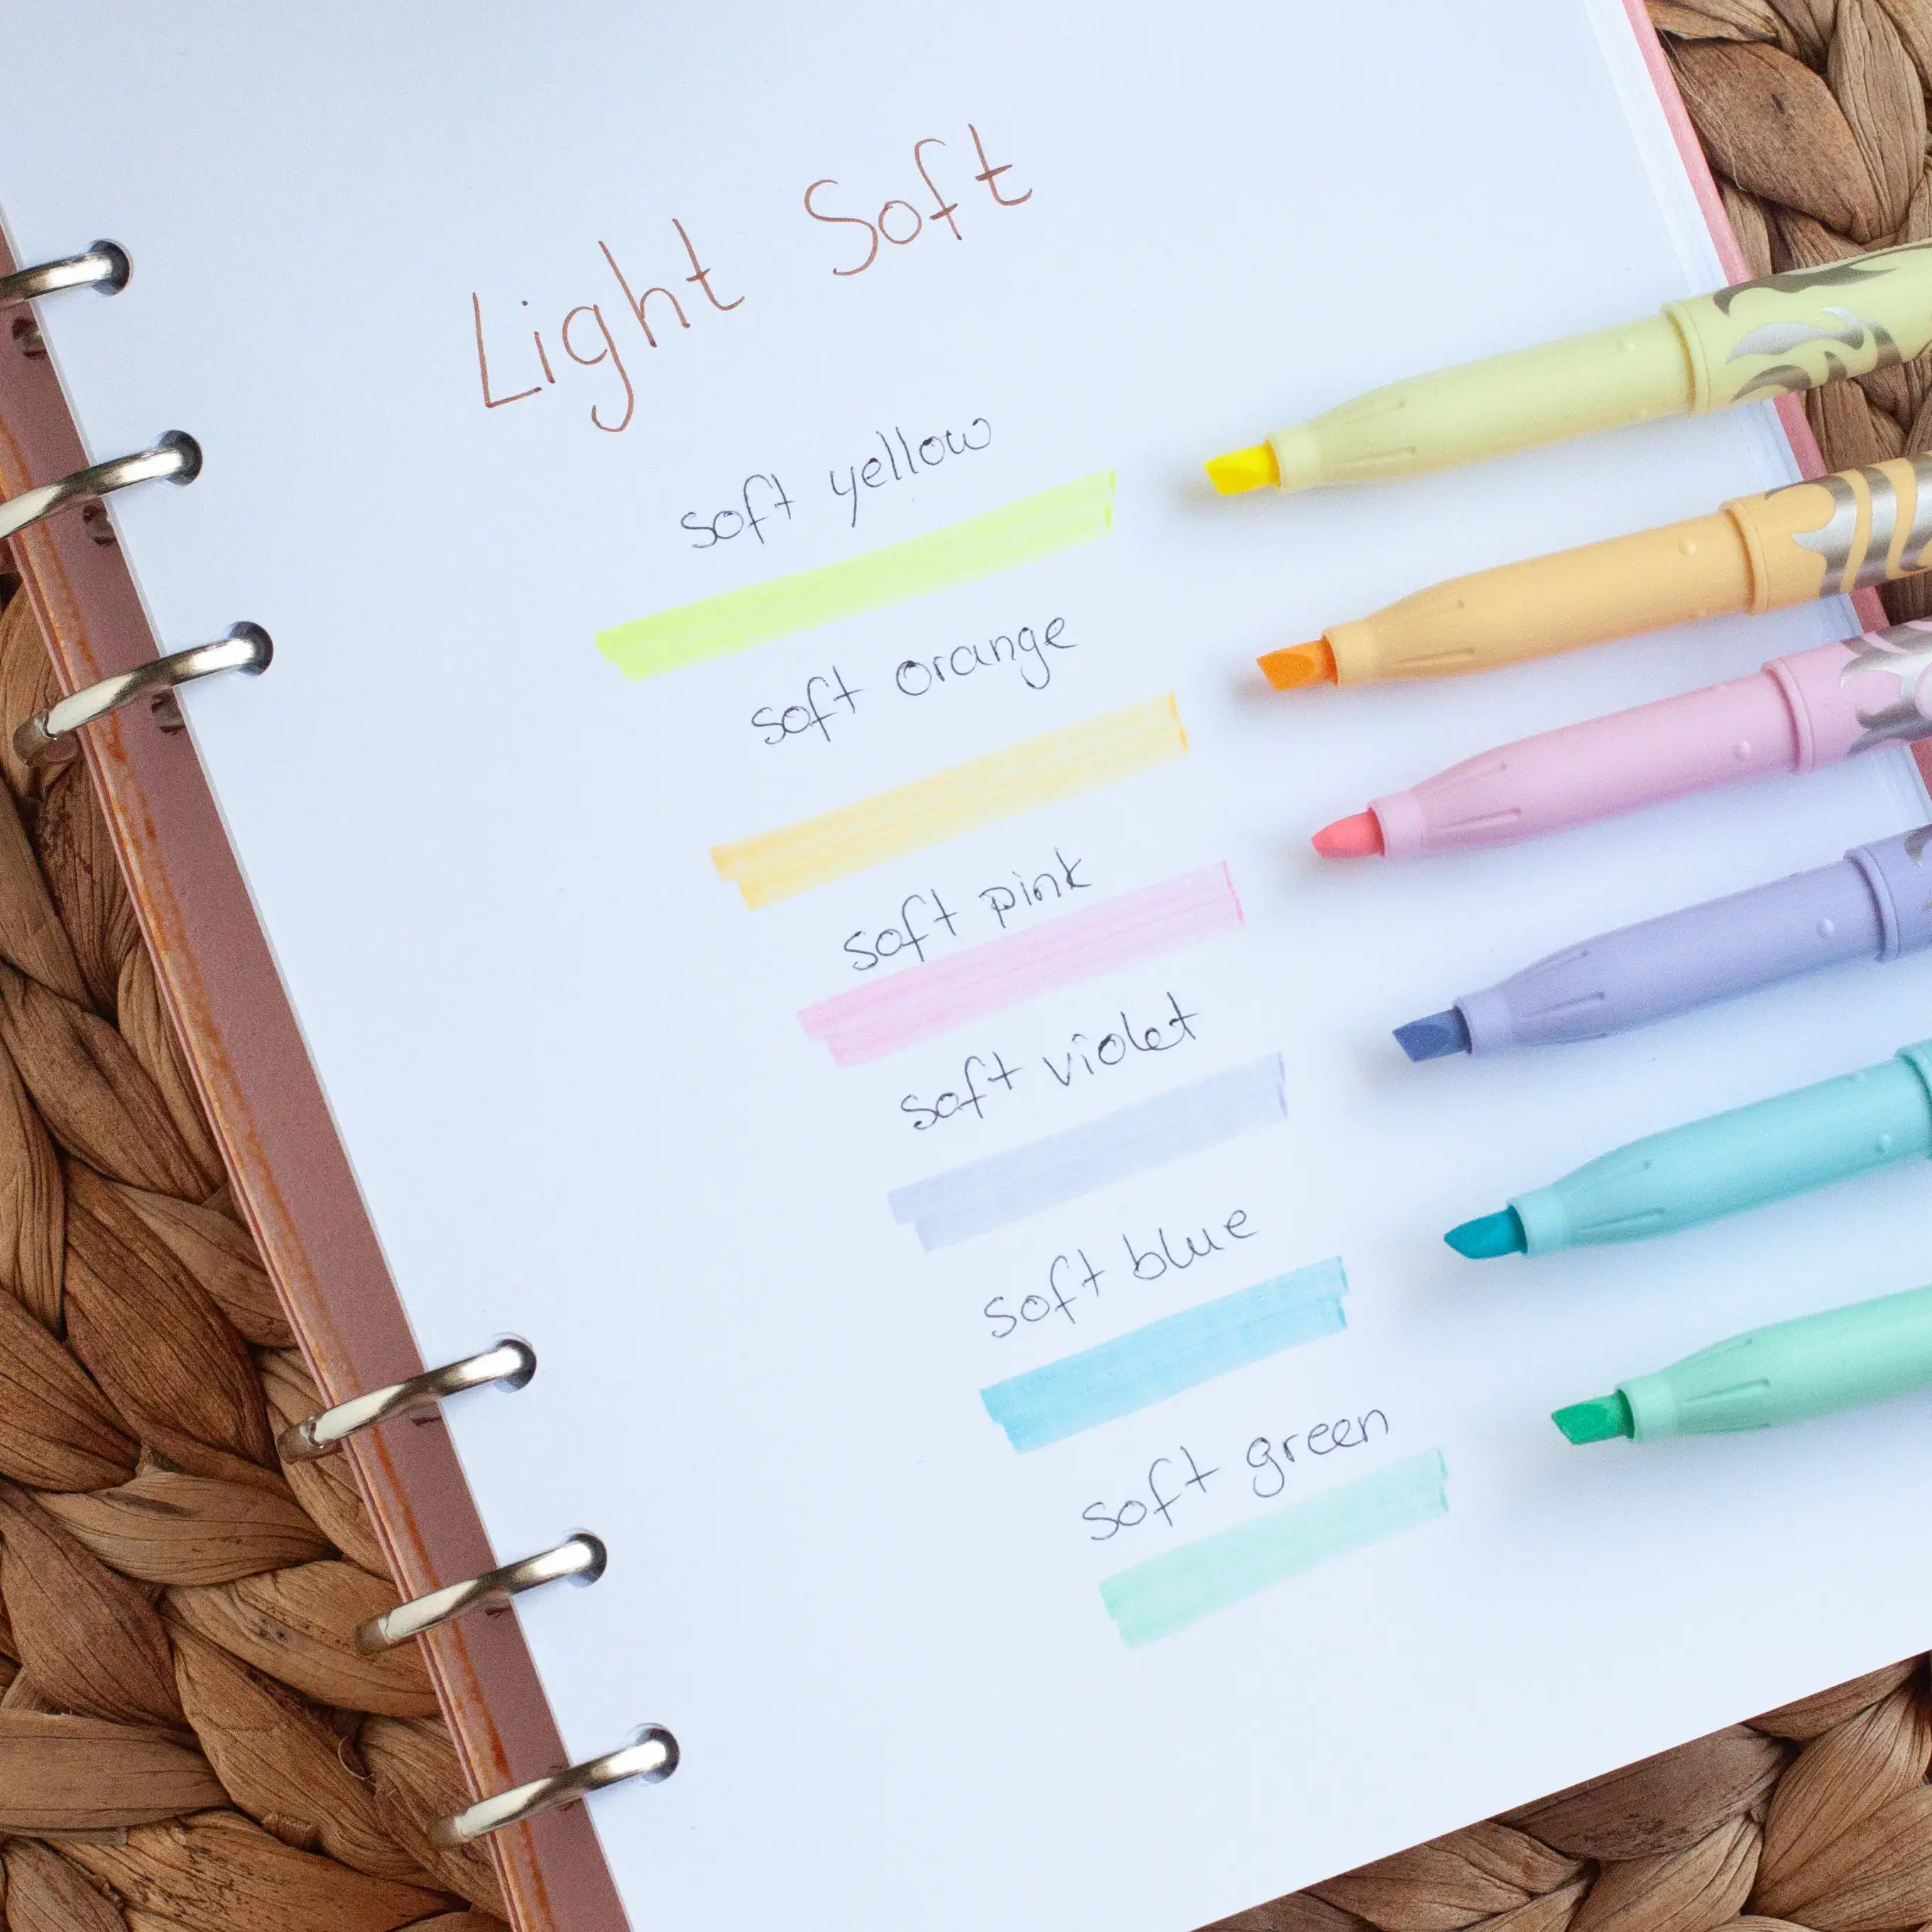 Light Soft
soft yellow
soft orange
soft pink
soft violet
soft blue
soft green